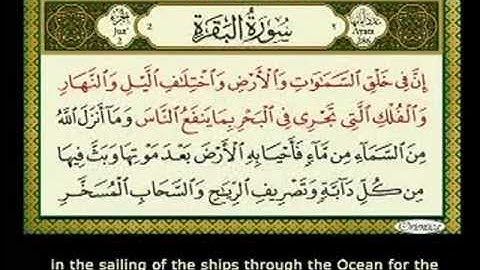 الجزء
Juz'
2
2
سورة البقرة
٢
عدد آياتها
Ayats
286
إِنَّ فِي خَلْقِ السَّمَاوَاتِ وَالْأَرْضِ وَاخْتِلَافِ اللَّيْلِ وَالنَّهَارِ
وَالْفُلْكِ الَّتِي تَجْرِي فِي الْبَحْرِ بِمَا يَنفَعُ النَّاسَ وَمَا أَنزَلَ اللَّهُ
مِنَ السَّمَاءِ مِن مَّاءٍ فَأَحْيَا بِهِ الْأَرْضَ بَعْدَ مَوْتِهَا وَبَثَّ فِيهَا
مِن كُلِّ دَابَّةٍ وَتَصْرِيفِ الرِّيَاحِ وَالسَّحَابِ الْمُسَخَّرِ
in the sailing of the ships through the Ocean for the